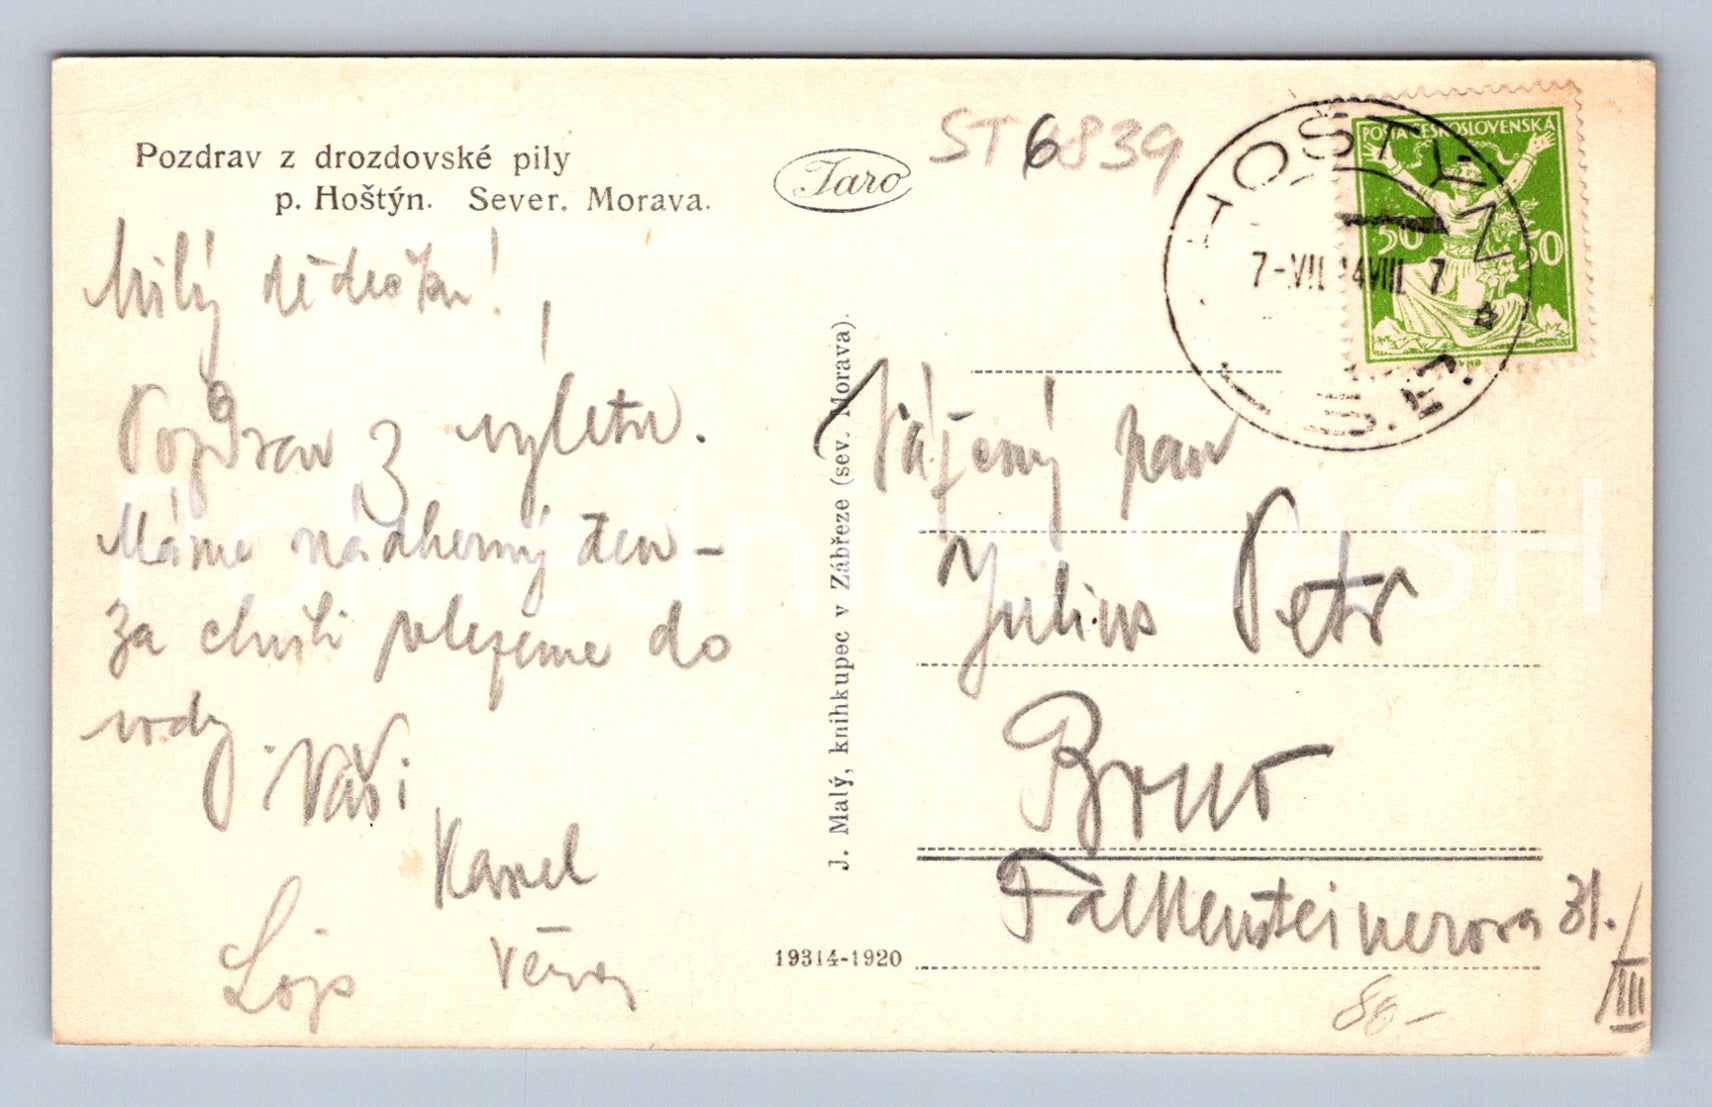 Pozdrav z drozdovské pily
p. Hoštýn. Sever. Morava.
Taro
ST6839
HOŠTÝN
7-VII 24VIII 7
POŠTA ČESKOSLOVENSKÁ
50 50
Milý dědečku!
Pozdrav z výletu.
Máme nádherný den –
za chvíli polezeme do
vody. Vaši
Karel
Lojs Věra
J. Malý, knihkupec v Zábřeze (sev. Morava).
Vážený pan
Julius Petr
Brno
Falkensteinerova 31./III
19314-1920
80-
Pohlednice GASH